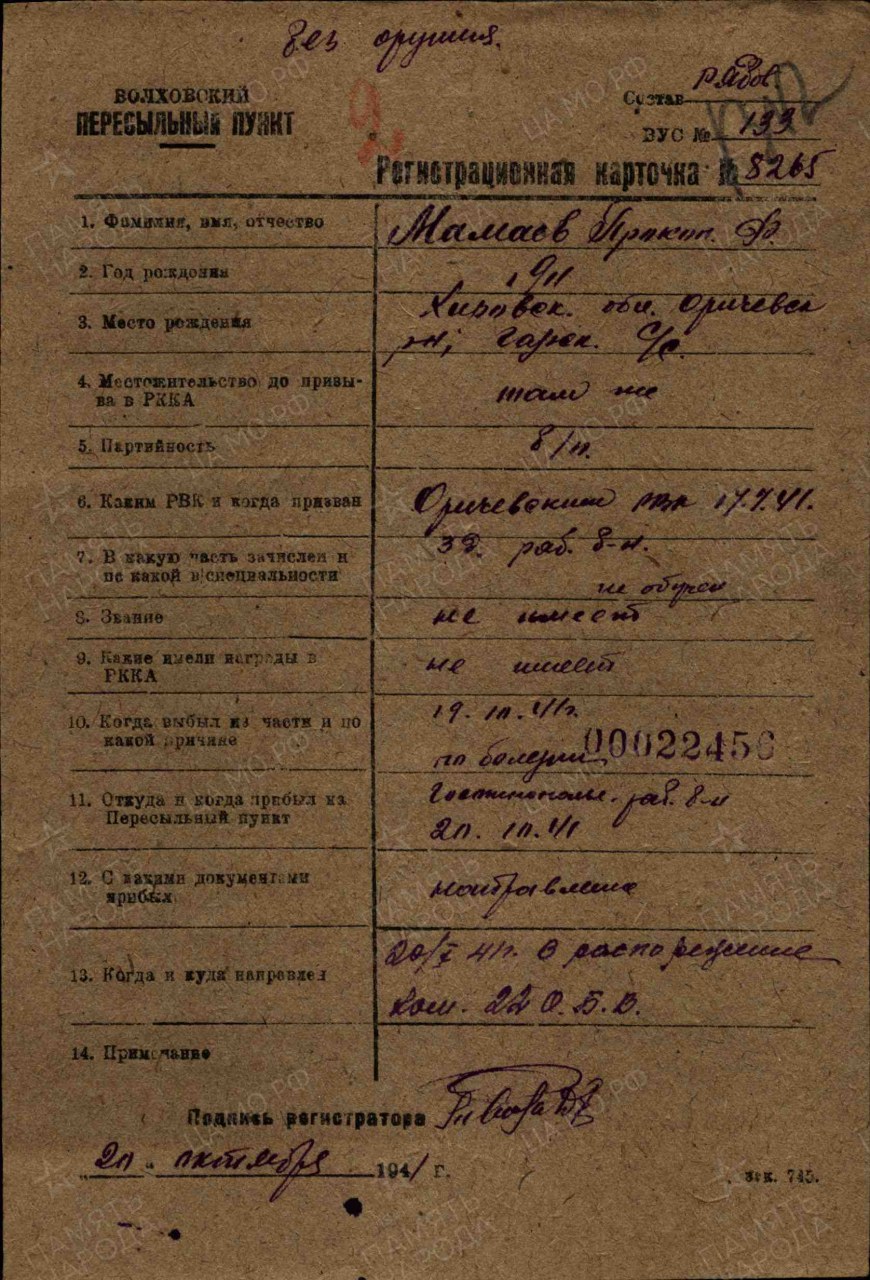 без оружия.
ВОЛХОВСКИЙ
ПЕРЕСЫЛЬНЫЙ ПУНКТ
Состав рядов
ВУС № 133
Регистрационная карточка № 8265
1. Фамилия, имя, отчество Мамаев Прокоп. Ф.
2. Год рождения
3. Место рождения Кировск. обл. Оричевск
рн; Гарск. С/с.
4. Местожительство до призы-
ва в РККА там же
5. Партийность б/п.
6. Каким РВК и когда призван Оричевским рвк 17.7.41.
7. В какую часть зачислен и
по какой специальности 39. раб. б-н.
не обучен
8. Звание не имеет
9. Какие имели награды в
РККА не имеет
10. Когда выбыл из части и по
какой причине 19. 10. 41г.
по болезни
00022456
11. Откуда и когда прибыл на
Пересыльный пункт Гостинополье. раб. б-н
20. 10. 41
12. С какими документами
прибыл направление
13. Когда и куда направлен 20/X 41г. в распоряжение
Ком. 22 О.Б.В.
14. Примечание
Подпись регистратора
„20" октября 1941 г.
зак. 745.
ПАМЯТЬ НАРОДА
ЦА МО.РФ